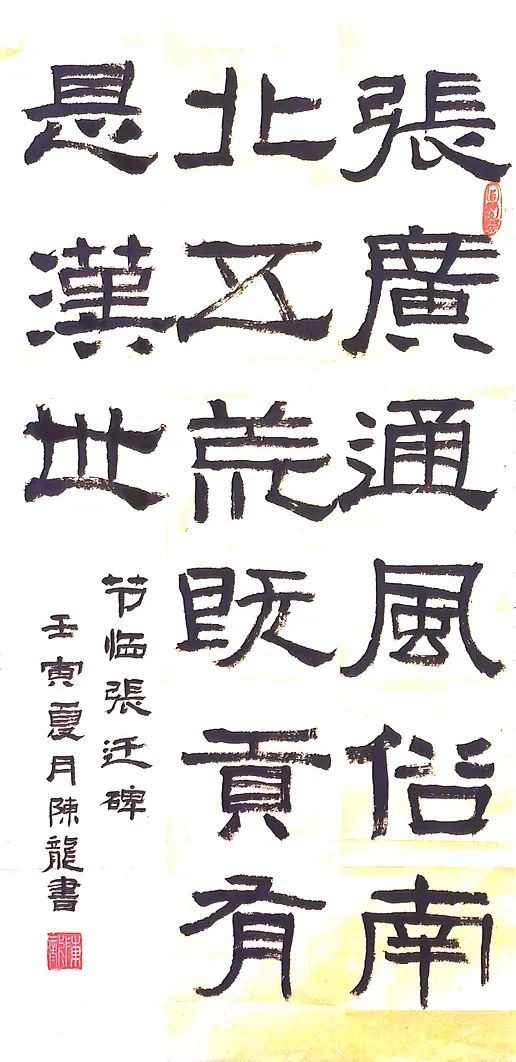 張廣通風俗南
北五荒既貢有
是漢世
节临張迁碑
壬寅夏月陳龍書
陳龍